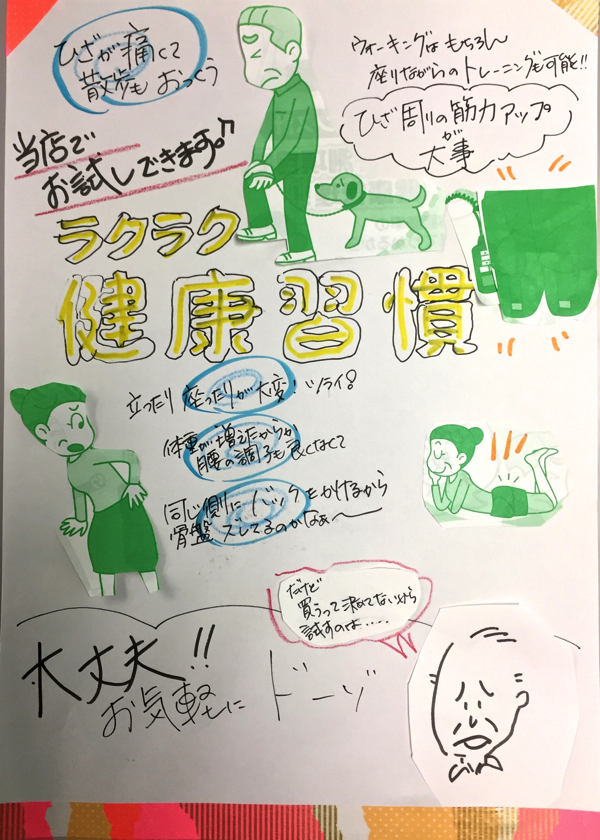 ひざが痛くて
散歩もおっくう
ウォーキングはもちろん
座りながらのトレーニングも可能!!
ひざ周りの筋力アップ
が
大事
当店で
お試しできます♪
ラクラク
健康習慣
立ったり座ったりが大変!ツライ!
体重が増えたからか
腰の調子も良くなくて
同じ側にバックをかけるから
骨盤ズレてるのかなぁ〜
だけど
買うって決めてないから
試すのは……
大丈夫!!
お気軽に ドーゾ